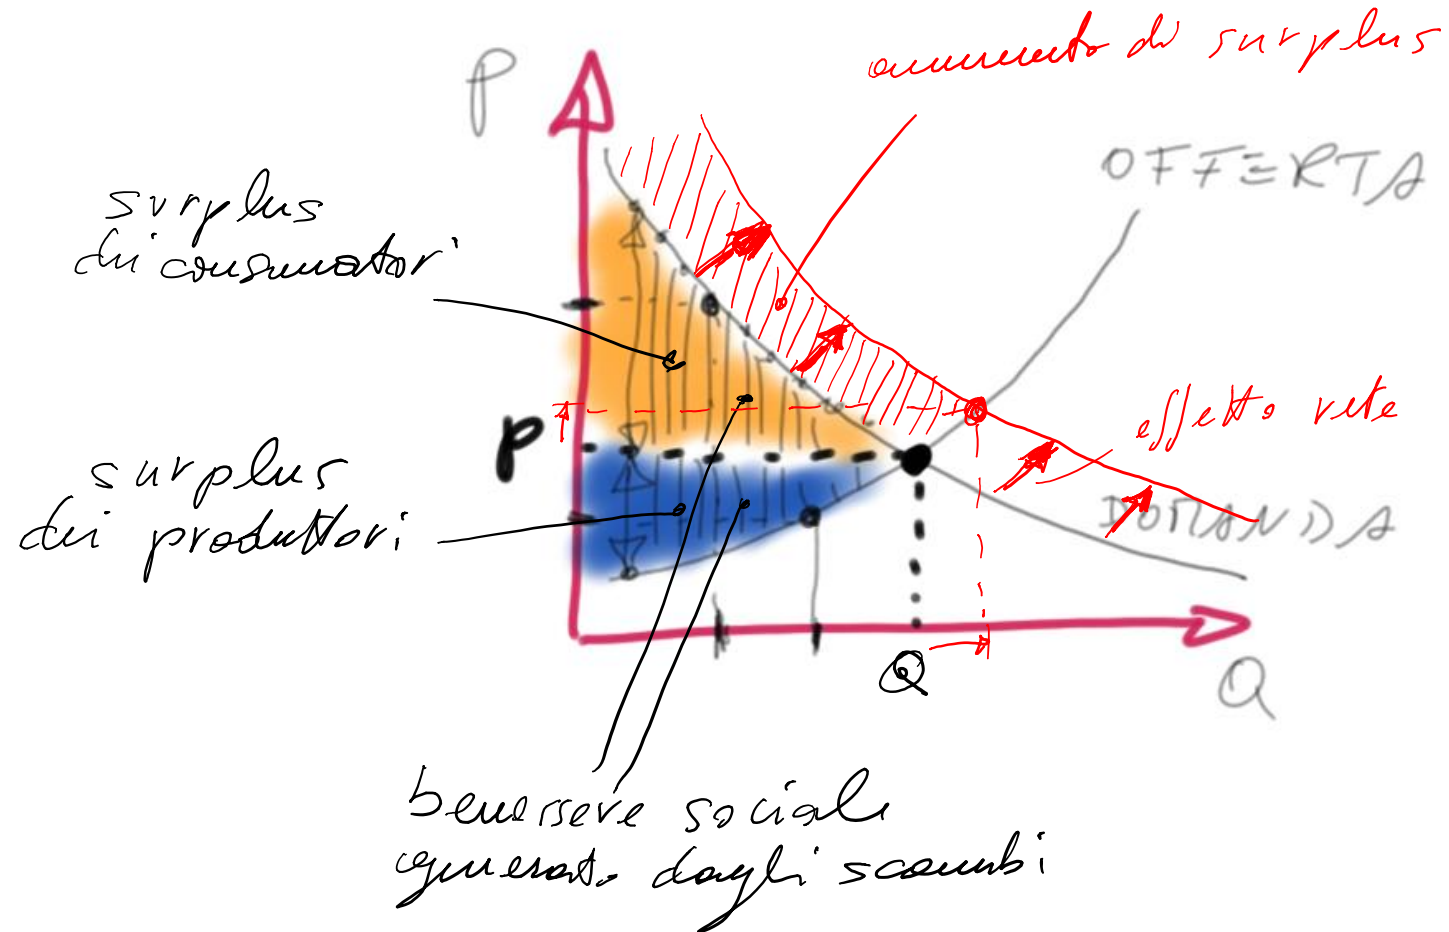 aumento di surplus
P
OFFERTA
surplus
dei consumatori
effetto rete
P
surplus
dei produttori
DOMANDA
Q
Q
benessere sociale
generato dagli scambi